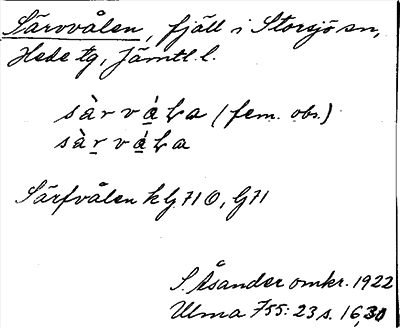 Särvvålen, fjäll i Storsjö sn,
Hede tg, Jämtl. l.
sàrvá̱ꞎa (fem. obs.)
sàṟvá̱ꞎa
Särfvålen k G 71 O, G 71
S. Åsander omkr. 1922
Ulma 755: 23 s. 16, 30